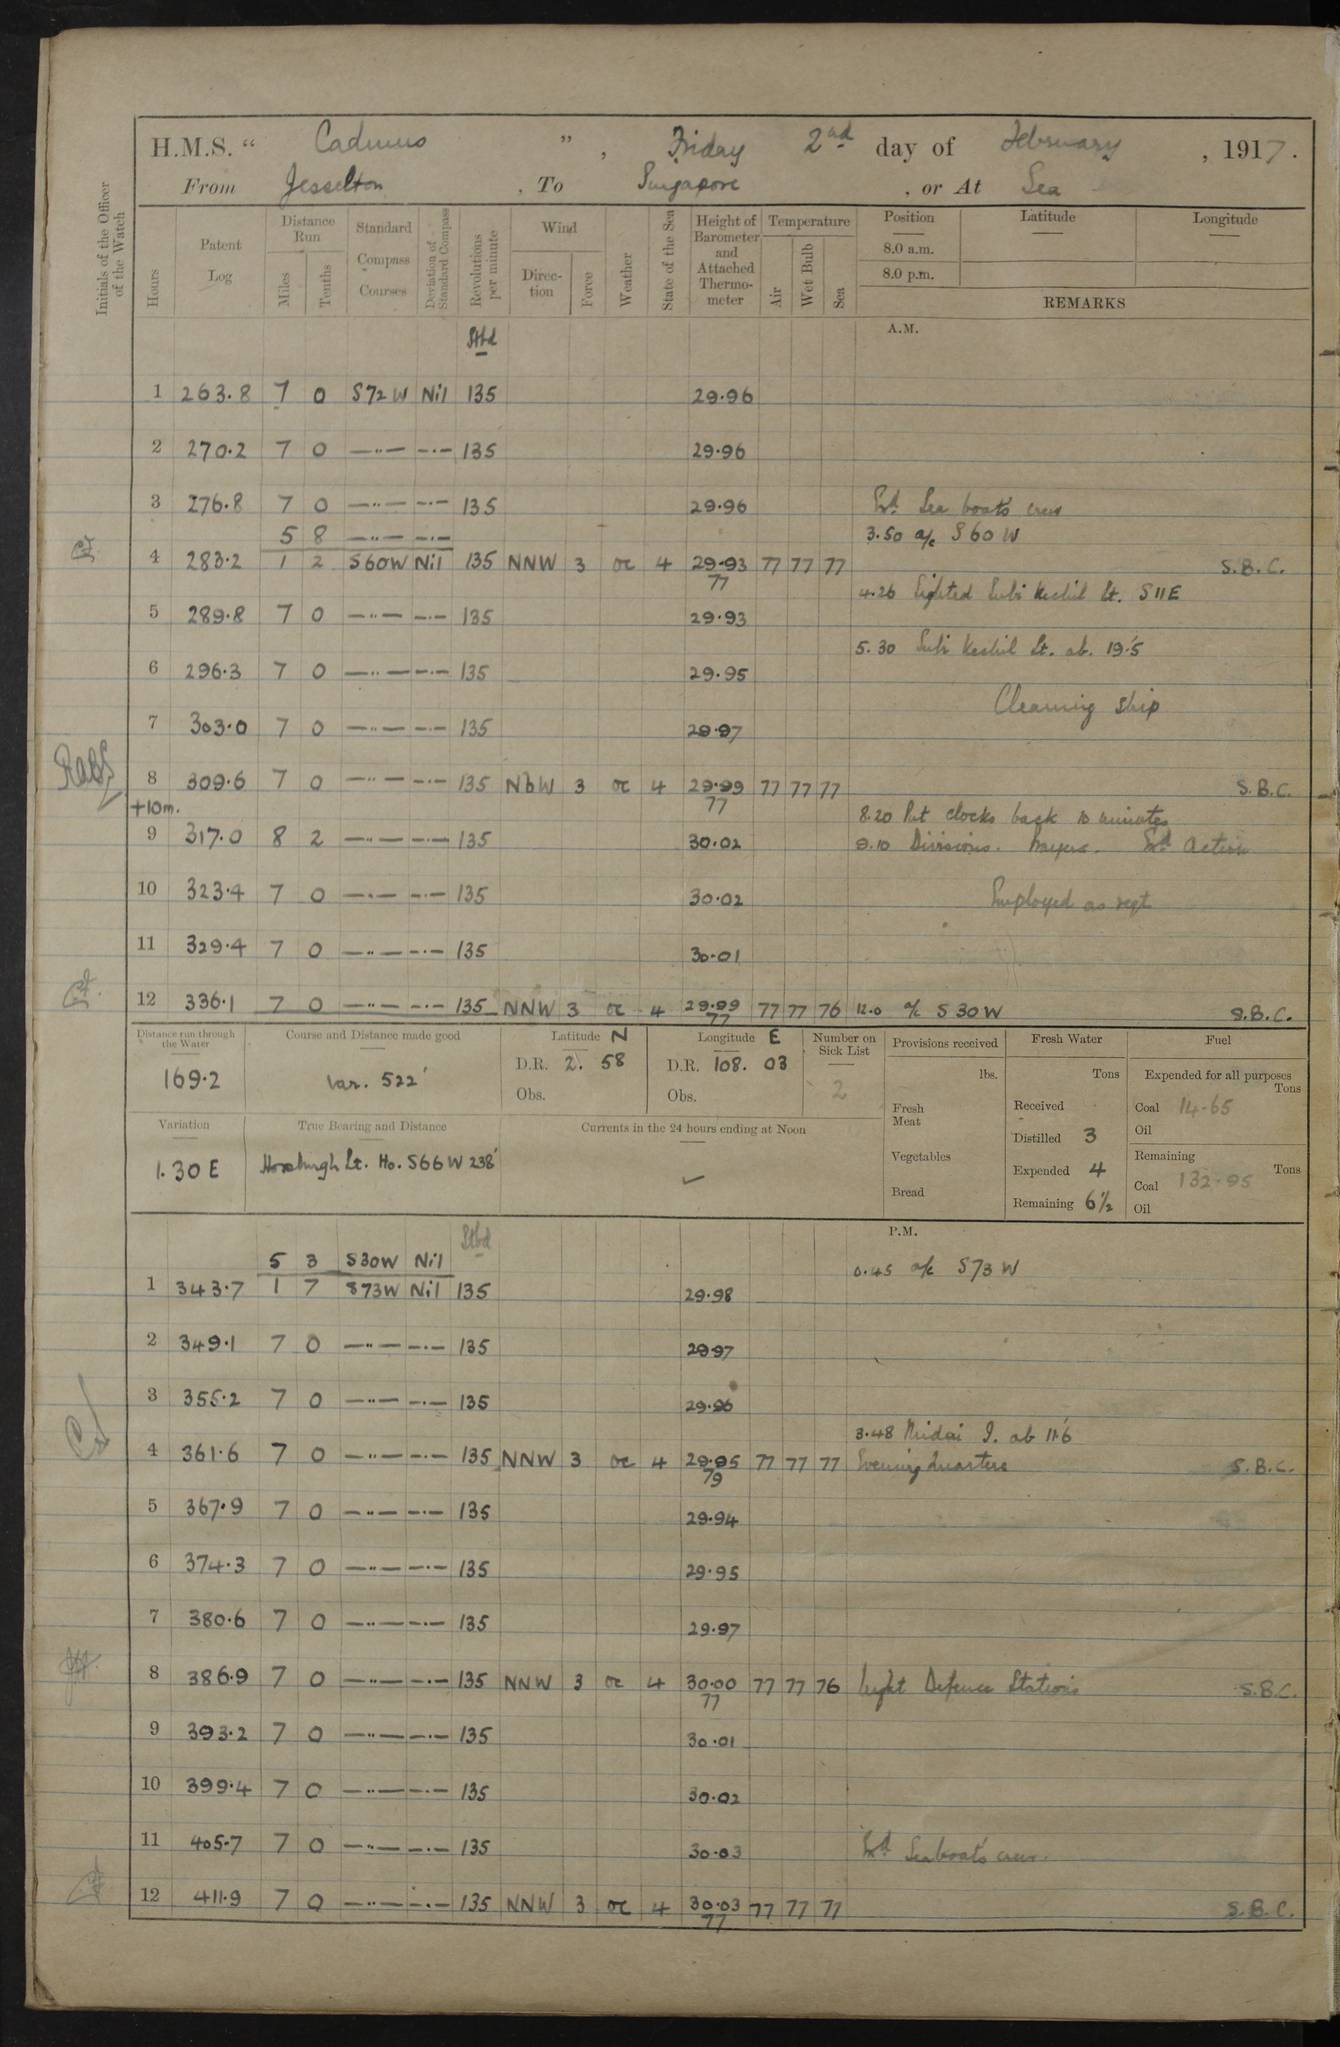 H.M.S. " Cadmus ", Friday 2nd day of February, 1917.
From Jesselton, To Singapore, or At Sea
Initials of the Officer of the Watch
Hours
Patent Log
Distance Run
Miles
Tenths
Standard Compass Courses
Deviation of Standard Compass
Revolutions per minute
Wind
Direction
Force
Weather
State of the Sea
Height of Barometer and Attached Thermometer
Temperature
Air
Wet Bulb
Sea
Position
Latitude
Longitude
8.0 a.m.
8.0 p.m.
REMARKS
Stbd
A.M.
1 263.8 7 0 S72W Nil 135 29.96
2 270.2 7 0 —··— —·— 135 29.96
3 276.8 7 0 —··— —·— 135 29.96 Exd. Sea boats crew
5 8 —··— —·— 3.50 a/c S60W
4 283.2 1 2 S60W Nil 135 NNW 3 oc 4 29.93 77 77 77 S.B.C.
77
4.26 Sighted Subi Kechil Lt. S11E
5 289.8 7 0 —··— —·— 135 29.93
5.30 Subi Kechil Lt. ab. 19.5'
6 296.3 7 0 —··— —·— 135 29.95
Cleaning ship
7 303.0 7 0 —··— —·— 135 29.97
8 309.6 7 0 —··— —·— 135 NbW 3 oc 4 29.99 77 77 77 S.B.C.
77
+10m.
8.20 Put clocks back 10 minutes
9 317.0 8 2 —··— —·— 135 30.02 9.10 Divisions. Prayers. Exd. Action
10 323.4 7 0 —·— —·— 135 30.02 Employed as reqt
11 329.4 7 0 —··— —·— 135 30.01
12 336.1 7 0 —··— —·— 135 NNW 3 oc 4 29.99 77 77 76 12.0 a/c S30W S.B.C.
77
Distance run through the Water
169.2
Course and Distance made good
Var. 522'
Latitude N
D.R. 2. 58
Obs.
Longitude E
D.R. 108. 03
Obs.
Number on Sick List
2
Provisions received
lbs.
Fresh Meat
Vegetables
Bread
Fresh Water
Tons
Received
Distilled 3
Expended 4
Remaining 6½
Fuel
Expended for all purposes
Tons
Coal 14.65
Oil
Remaining
Tons
Coal 132.95
Oil
Variation
1.30 E
True Bearing and Distance
Horsburgh Lt. Ho. S66W 238'
Currents in the 24 hours ending at Noon
✓
Stbd
P.M.
5 3 S30W Nil 0.45 a/c S73W
1 343.7 1 7 S73W Nil 135 29.98
2 349.1 7 0 —··— —·— 135 29.97
3 355.2 7 0 —··— —·— 135 29.96
3.48 Midai I. ab 11.6'
4 361.6 7 0 —··— —·— 135 NNW 3 oc 4 29.95 77 77 77 Evening Quarters S.B.C.
79
5 367.9 7 0 —··— —·— 135 29.94
6 374.3 7 0 —··— —·— 135 29.95
7 380.6 7 0 —··— —·— 135 29.97
8 386.9 7 0 —··— —·— 135 NNW 3 oc 4 30.00 77 77 76 Night Defence Stations S.B.C.
77
9 393.2 7 0 —··— —·— 135 30.01
10 399.4 7 0 —··— —·— 135 30.02
11 405.7 7 0 —··— —·— 135 30.03 Exd Seaboats crew.
12 411.9 7 0 —··— —·— 135 NNW 3 oc 4 30.03 77 77 77 S.B.C.
77